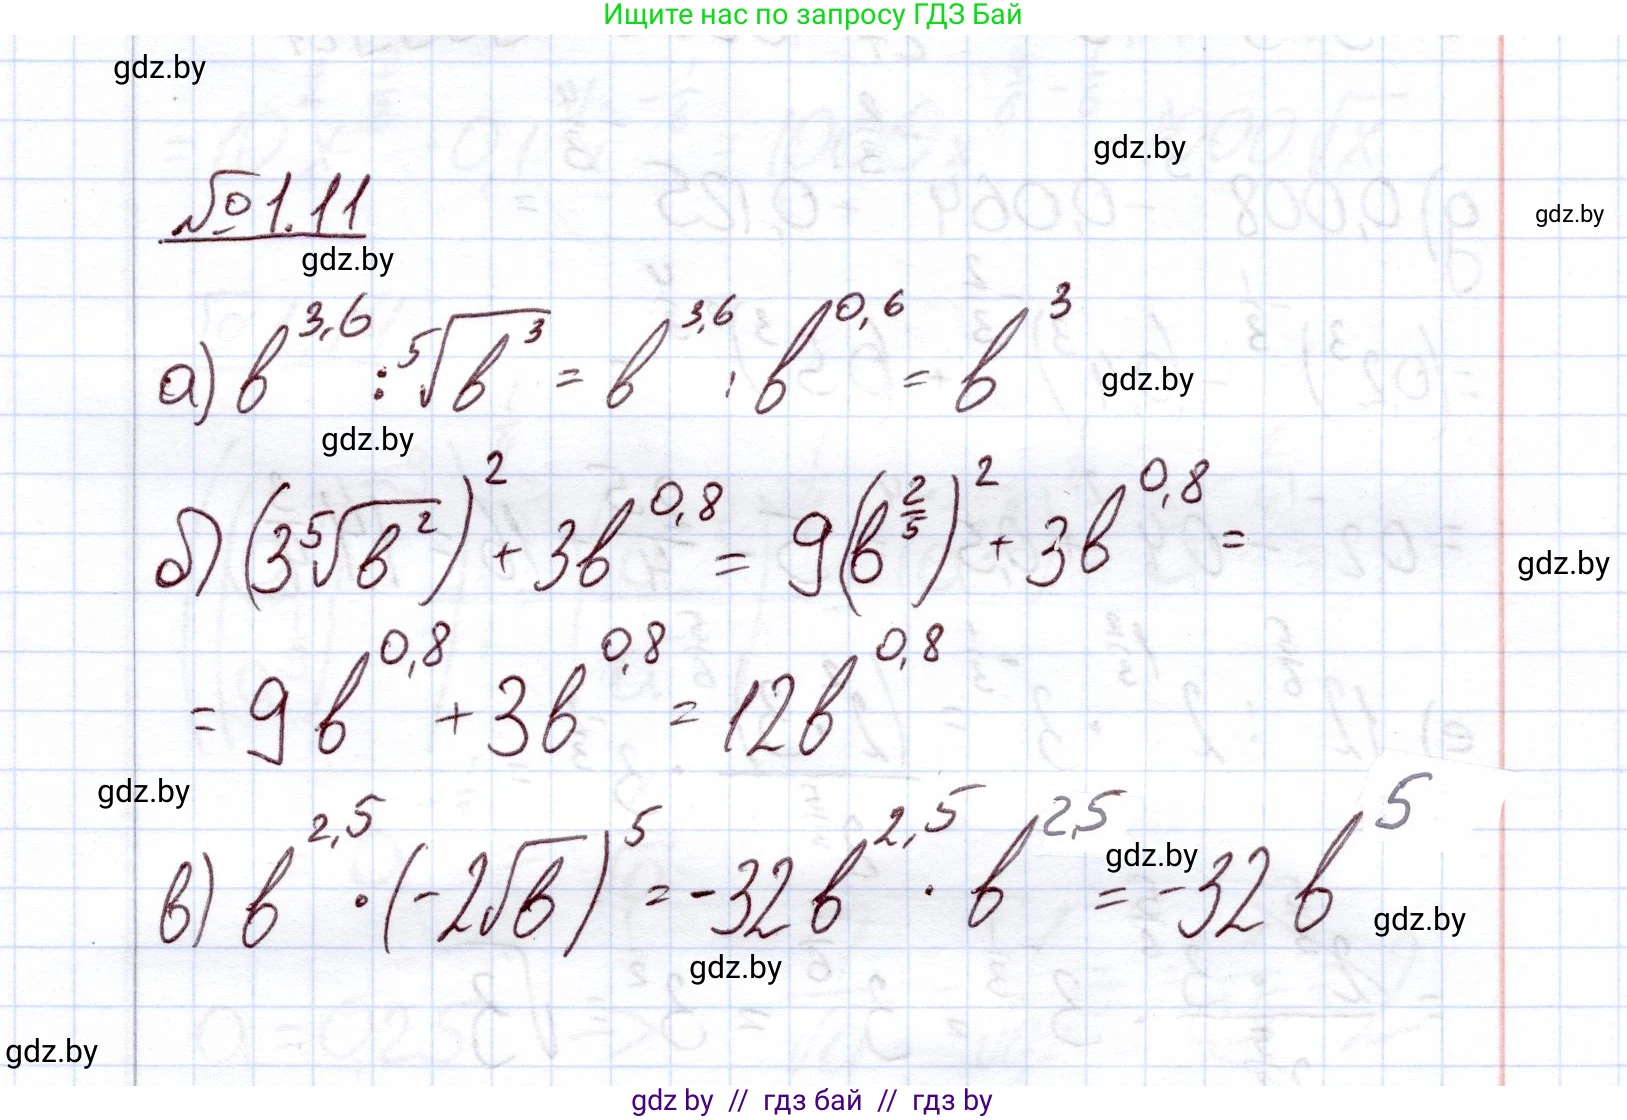 Ищите нас по запросу ГДЗ Бай
gdz.by
gdz.by
№1.11
gdz.by
gdz.by
а) b^3,6 : ⁵√b³ = b^3,6 : b^0,6 = b³
gdz.by
gdz.by
б) (3⁵√b²)² + 3b^0,8 = 9(b^(2/5))² + 3b^0,8 =
gdz.by
= 9b^0,8 + 3b^0,8 = 12b^0,8
gdz.by
в) b^2,5 · (-2√b)⁵ = -32b^2,5 · b^2,5 = -32b⁵
gdz.by
gdz.by
gdz.by
gdz.by
gdz by // гдз бай // гдз by